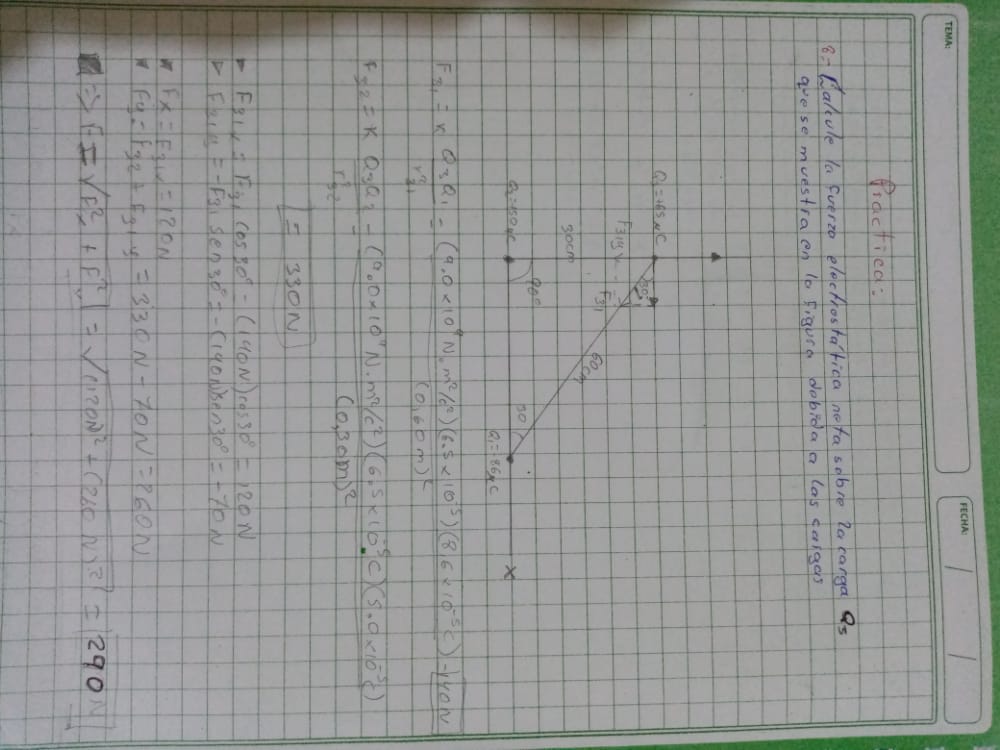 TEMA:
FECHA:
Practica:
8.- Calcule la fuerza electrostática neta sobre la carga Q3
que se muestra en la figura dobida a las cargas
Q3=+65μC
30°
F31y
F31
30cm
60cm
90°
30
Q2=+50μC
Q1=-86μC
X
F31 = K Q3Q1 = (9.0x10⁹N.m²/c²)(6.5x10⁻⁵)(8.6x10⁻⁵C) = 140N
r²31 (0,60m)²
F32 = K Q3Q2 = (9.0x10⁹N.m²/c²)(6.5x10⁻⁵C)(5.0x10⁻⁵C)
r²32 (0,30m)²
= 330N
F31x = F31 cos30° = (140N)cos30° = 120N
F31y = -F31 sen30° = -(140N)sen30° = -70N
Fx = F31x = 120N
Fy = F32 + F31y = 330N - 70N = 260N
=> F = √F²x + F²y = √(120N)² + (260N)² = 290N